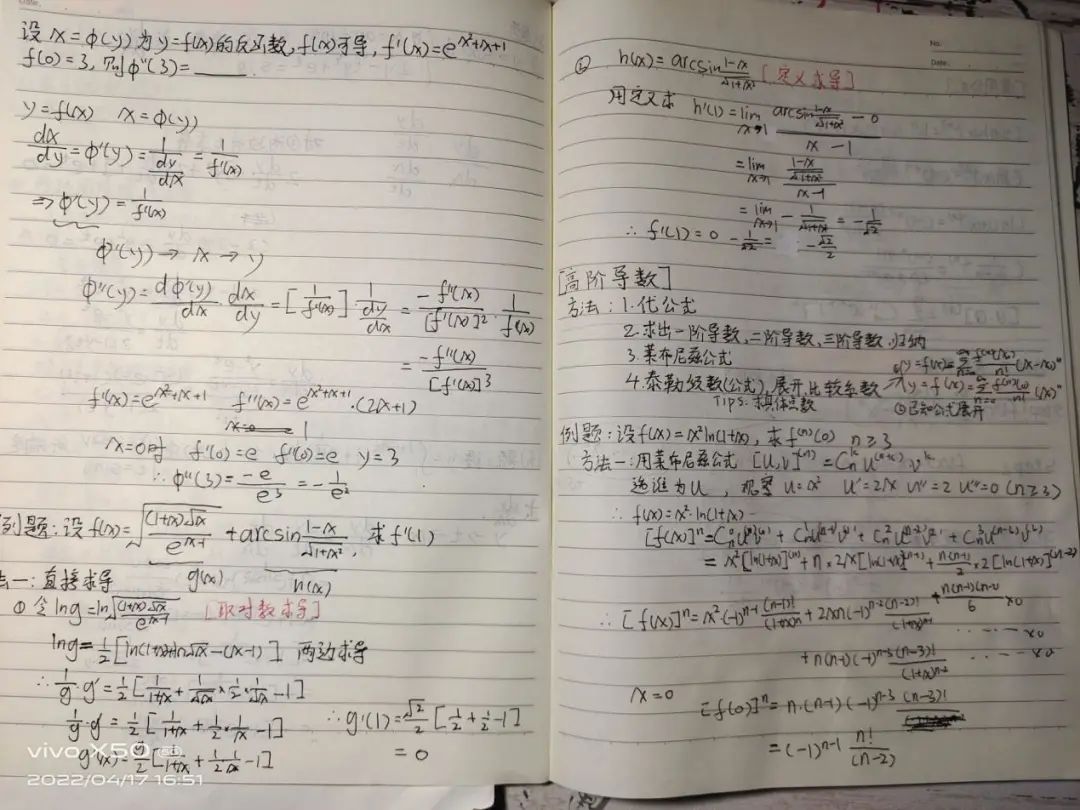 设 x=φ(y) 为 y=f(x) 的反函数, f(x) 可导, f'(x)=e^{x²+x+1}
f(0)=3, 则 φ''(3)=____
y=f(x) x=φ(y)
dx/dy=φ'(y)=1/(dy/dx)=1/f'(x)
⇒φ'(y)=1/f'(x)
φ'(y)→x→y
φ''(y)=dφ'(y)/dx·dx/dy=[1/f'(x)]'1/(dy/dx)=-f''(x)/[f'(x)]²·1/f'(x)
=-f''(x)/[f'(x)]³
f'(x)=e^{x²+x+1} f''(x)=e^{x²+x+1}·(2x+1)
x=0时 f'(0)=e f''(0)=e y=3
∴φ''(3)=-e/e³=-1/e²
例题:设f(x)=√((1+x)√x/e^{x-1})+arcsin(1-x)/√(1+x²), 求f'(1)
g(x) h(x)
法一:直接求导
① 令lng=ln√((1+x)√x/e^{x-1}) [取对数求导]
lng=1/2[ln(1+x)+ln√x-(x-1)] 两边求导
∴1/g·g'=1/2[1/(1+x)+1/√x×1/2×1/√x-1]
1/g·g'=1/2[1/(1+x)+1/2×1/x-1] ∴g'(1)=√2/2[1/2+1/2-1]
g'(x)=g/2[1/(1+x)+1/2x-1] =0
vivo X50
2022/04/17 16:51
No.
Date.
② h(x)=arcsin(1-x)/√(1+x²) [定义求导]
用定义求 h'(1)=lim x→1 (arcsin(1-x)/√(1+x²)-0)/(x-1)
=lim x→1 ((1-x)/√(1+x²))/(x-1)
=lim x→1 -1/√(1+x²)=-1/√2
∴f'(1)=0-1/√2=-√2/2
[高阶导数]
方法:1.代公式
2.求出一阶导数,二阶导数,三阶导数.归纳
3.莱布尼兹公式
4.泰勒级数(公式),展开比较系数
①y=f(x)=∑n=0 f^{(n)}(x₀)/n!(x-x₀)^n
y=f(x)=∑n=0 f^{(n)}(0)/n!(x)^n
Tips:求具体点数 ②已知公式展开
例题:设f(x)=x²ln(1+x), 求f^{(n)}(0) n≥3
方法一:用莱布尼兹公式 [u,v]^{(n)}=C_n^k u^{(n-k)} v^k
选谁为u, 观察 u=x² u'=2x u''=2 u'''=0 (n≥3)
∴f(x)=x²·ln(1+x)
[f(x)]^n=C_n^0u^{(n)}v^{(0)}+C_n^1u^{(n-1)}v'+C_n^2u^{(n-2)}v''+C_n^3u^{(n-3)}v^{(3)}
=x²[ln(1+x)]^{(n)}+n×2x[ln(1+x)]^{(n-1)}+n(n-1)/2×2[ln(1+x)]^{(n-2)}
+n(n-1)(n-2)/6×0
∴[f(x)]^n=x²(-1)^{n-1}(n-1)!/(1+x)^n+2xn(-1)^{n-2}(n-2)!/(1+x)^{n-1} ……×0
+n(n-1)(-1)^{n-3}(n-3)!/(1+x)^{n-2} ……×0
x=0 [f(0)]^n=n·(n-1)(-1)^{n-3}(n-3)!
=(-1)^{n-1} n!/(n-2)